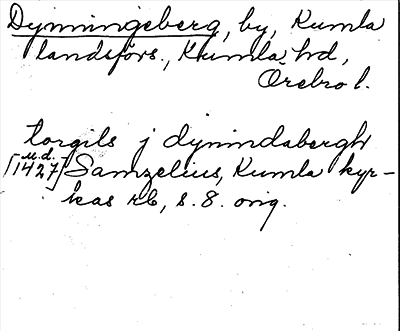 Dynningeberg, by, Kumla
landsförs., Kumla hd,
Örebro l.
torgils j dynindabergh
[u.d. 1427] Samzelius, Kumla kyr-
kas rb, s. 8. orig.